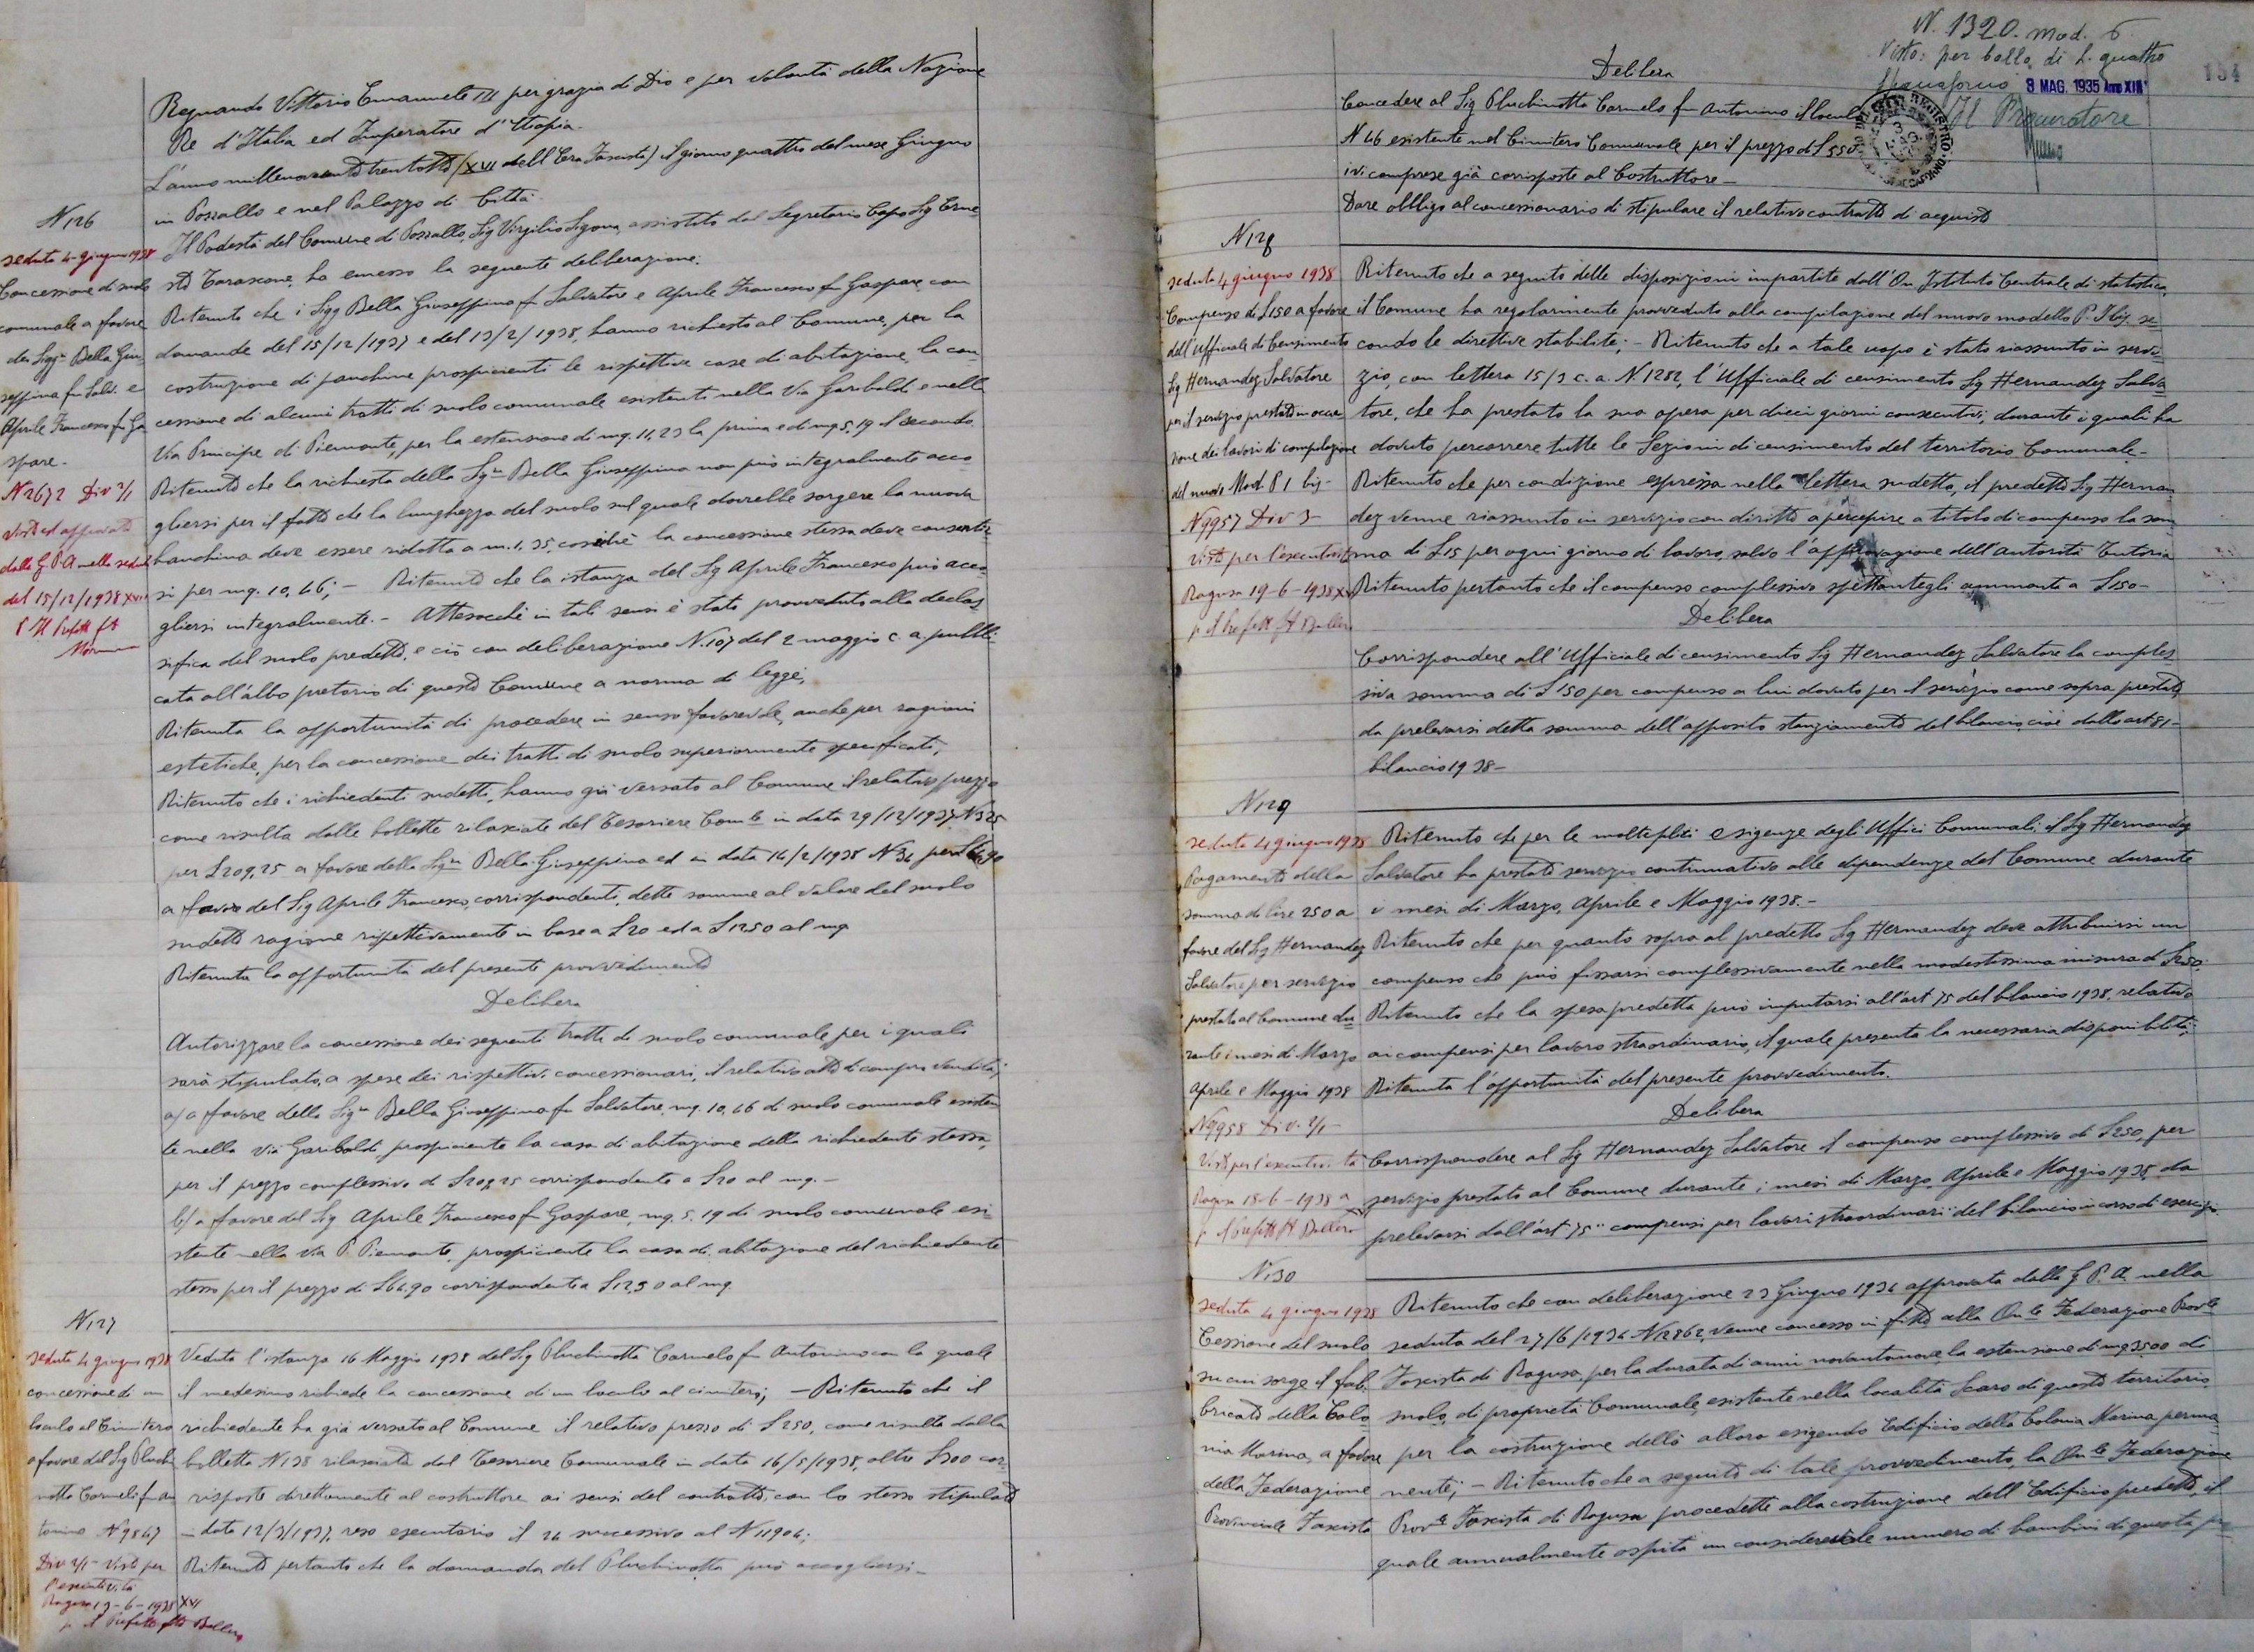 Regnando Vittorio Emanuele III per grazia di Dio e per volontà della Nazione
Re d'Italia ed Imperatore d'Etiopia.
L'anno millenovecentotrentotto (XVI dell'Era Fascista) il giorno quattro del mese Giugno
in Pozzallo e nel Palazzo di Città
Il Podestà del Comune di Pozzallo, Sig Virgilio Sigona, assistito dal Segretario Capo Sig Erne
sto Tarascone, ha emesso la seguente deliberazione:
N 126
seduta 4 giugno 1938
Concessione di suolo
comunale a favore
dei Sigg.ri Bella Giu
seppina fu Salv. e
Aprile Francesco fu Ga
spare.
N 2672 Div 2/1
Visto ed approvato
dalla G.P.A nella seduta
del 15/12/1938 XVII
P Il Prefetto fto
Ritenuto che i Sigg Bella Giuseppina fu Salvatore e Aprile Francesco fu Gaspare con
domande del 15/12/1937 e del 13/2/1938, hanno richiesto al Comune, per la
costruzione di panchine prospicienti le rispettive case di abitazione, la con
cessione di alcuni tratti di suolo comunale esistenti nella Via Garibaldi e nella
Via Principe di Piemonte, per la estensione di mq. 11,23 la prima e di mq 5,19 il secondo
Ritenuto che la richiesta della Sig.ra Bella Giuseppina non può integralmente acco
gliersi per il fatto che la lunghezza del suolo sul quale dovrebbe sorgere la nuova
banchina deve essere ridotta a m. 1,35, cosicché la concessione stessa deve consentir
si per mq. 10,46; - Ritenuto che la istanza del Sig Aprile Francesco può acco
gliersi integralmente. - Attesocché in tali sensi è stato provveduto alla declas
sifica del suolo predetto, e ciò con deliberazione N. 107 del 2 maggio c. a. pubbli
cata all'albo pretorio di questo Comune a norma di legge;
Ritenuta la opportunità di procedere in senso favorevole, anche per ragioni
estetiche, per la concessione dei tratti di suolo superiormente specificati;
Ritenuto che i richiedenti sudetti, hanno già versato al Comune il relativo prezzo
come risulta dalle bollette rilasciate dal Tesoriere Com.le in data 29/12/1937 N 325
per £ 209,25 a favore della Sig.ra Bella Giuseppina ed in data 14/2/1938 N 34 per £ 64,90
a favore del Sig Aprile Francesco, corrispondenti, dette somme al valore del suolo
sudetto ragione rispettivamente in base a £ 20 ed a £ 12,50 al mq
Ritenuta la opportunità del presente provvedimento
Delibera
Autorizzare la concessione dei seguenti tratti di suolo comunale, per i quali
sarà stipulato, a spese dei rispettivi concessionari, il relativo atto di compra vendita;
a) a favore della Sig.ra Bella Giuseppina fu Salvatore, mq. 10,46 di suolo comunale esisten
te nella Via Garibaldi, prospiciente la casa di abitazione della richiedente stessa,
per il prezzo complessivo di £ 209,25 corrispondente a £ 20 al mq. -
b) a favore del Sig Aprile Francesco fu Gaspare, mq. 5,19 di suolo comunale esi
stente nella Via P. Piemonte, prospiciente la casa di abitazione del richiedente
stesso per il prezzo di £ 64,90 corrispondente a £ 12,50 al mq.
N 127
seduta 4 giugno 1938
concessione di un
loculo al Cimitero
a favore del Sig Pluchi
notta Carmelo fu An
tonino N 9847
Div 2/1 - Visto per
l'esecutività
Ragusa 19-6-1938 XVI
p il Prefetto fto
Veduta l'istanza 16 Maggio 1938 del Sig Pluchinotta Carmelo fu Antonino con la quale
il medesimo richiede la concessione di un loculo al cimitero; - Ritenuto che il
richiedente ha già versato al Comune il relativo prezzo di £ 250, come risulta dalla
bolletta N 138 rilasciata dal Tesoriere Comunale in data 16/5/1938, oltre £ 300 cor
risposte direttamente al costruttore ai sensi del contratto, con lo stesso stipulato
- data 12/3/1937, reso esecutorio il 24 successivo al N 11904;
Ritenuto pertanto che la domanda del Pluchinotta può accogliersi -
N. 1320. mod. 6.
Visto: per bollo di L. quattro
9 MAG. 1935 Anno XIII
Il Procuratore
134
Delibera
Concedere al Sig Pluchinotta Carmelo fu Antonino il loculo
N 46 esistente nel Cimitero Comunale per il prezzo di £ 550
ivi comprese già corrisposte al Costruttore -
Dare obbligo al concessionario di stipulare il relativo contratto di acquisto
N 128
seduta 4 giugno 1938
Compenso di £ 150 a favore
dell'Ufficiale di Censimento
Sig Hernandez Salvatore
per il servizio prestato in occa
sione dei lavori di compilazione
del nuovo Mod. P 1 bis -
N 9957 Div 3
Visto per l'esecutività
Ragusa 19-6-1938 XVI
p il Prefetto fto
Ritenuto che a seguito delle disposizioni impartite dall'On Istituto Centrale di statistica,
il Comune ha regolarmente provveduto alla compilazione del nuovo modello P. I bis. se
condo le direttive stabilite; - Ritenuto che a tale uopo è stato riassunto in servi
zio, con lettera 15/3 c. a. N. 1282, l'Ufficiale di censimento Sig Hernandez Salva
tore, che ha prestato la sua opera per dieci giorni consecutivi, durante i quali ha
dovuto percorrere tutte le Sezioni di censimento del territorio Comunale. -
Ritenuto che per condizione espressa nella lettera sudetta, il predetto Sig Hernan
dez venne riassunto in servizio con diritto a percepire a titolo di compenso la som
ma di £ 15 per ogni giorno di lavoro, salvo l'approvazione dell'Autorità Tutoria
Ritenuto pertanto che il compenso complessivo spettantegli ammonta a £ 150 -
Delibera
Corrispondere all'Ufficiale di censimento Sig Hernandez Salvatore la comples
siva somma di £ 150 per compenso a lui dovuto per il servizio come sopra prestato
da prelevarsi detta somma dell'apposito stanziamento del bilancio, cioè dallo art 81 -
bilancio 1938 -
N 129
seduta 4 giugno 1938
Pagamento della
somma di lire 250 a
favore del Sig Hernandez
Salvatore per servizio
prestato al Comune du
rante i mesi di Marzo
Aprile e Maggio 1938
N 9958 Div. 2/1 -
Visto per l'esecutività
Ragusa 18-6-1938
p il Prefetto fto
Ritenuto che per le molteplici esigenze degli Uffici Comunali, il Sig Hernandez
Salvatore ha prestato servizio continuativo alle dipendenze del Comune durante
i mesi di Marzo, Aprile e Maggio 1938. -
Ritenuto che per quanto sopra al predetto Sig Hernandez deve attribuirsi un
compenso che può fissarsi complessivamente nella modestissima misura di £ 250;
Ritenuto che la spesa predetta può imputarsi all'art 75 del bilancio 1938, relativo
ai compensi per lavoro straordinario, il quale presenta la necessaria disponibilità;
Ritenuta l'opportunità del presente provvedimento.
Delibera
Corrispondere al Sig Hernandez Salvatore il compenso complessivo di £ 250, per
servizio prestato al Comune durante i mesi di Marzo, Aprile e Maggio 1938, da
prelevarsi dall'art 75 "compensi per lavori straordinari" del bilancio in corso di esercizio.
N 130
seduta 4 giugno 1938
Cessione del suolo
su cui sorge il fab
bricato della Colo
nia Marina, a favore
della Federazione
Provinciale Fascista
Ritenuto che con deliberazione 23 Giugno 1934 approvata dalla G.P.A. nella
seduta del 27/6/1934 N 12862, venne concesso in fitto alla On.le Federazione Prov.le
Fascista di Ragusa, per la durata di anni novantanove, la estensione di mq 3500 di
suolo, di proprietà Comunale, esistente nella località Scaro di questo territorio,
per la costruzione dello allora esigendo Edificio della Colonia Marina perma
nente; - Ritenuto che a seguito di tale provvedimento, la On.le Federazione
Prov.le Fascista di Ragusa procedette alla costruzione dell'Edificio predetto, il
quale annualmente ospita un considerevole numero di bambini di questa